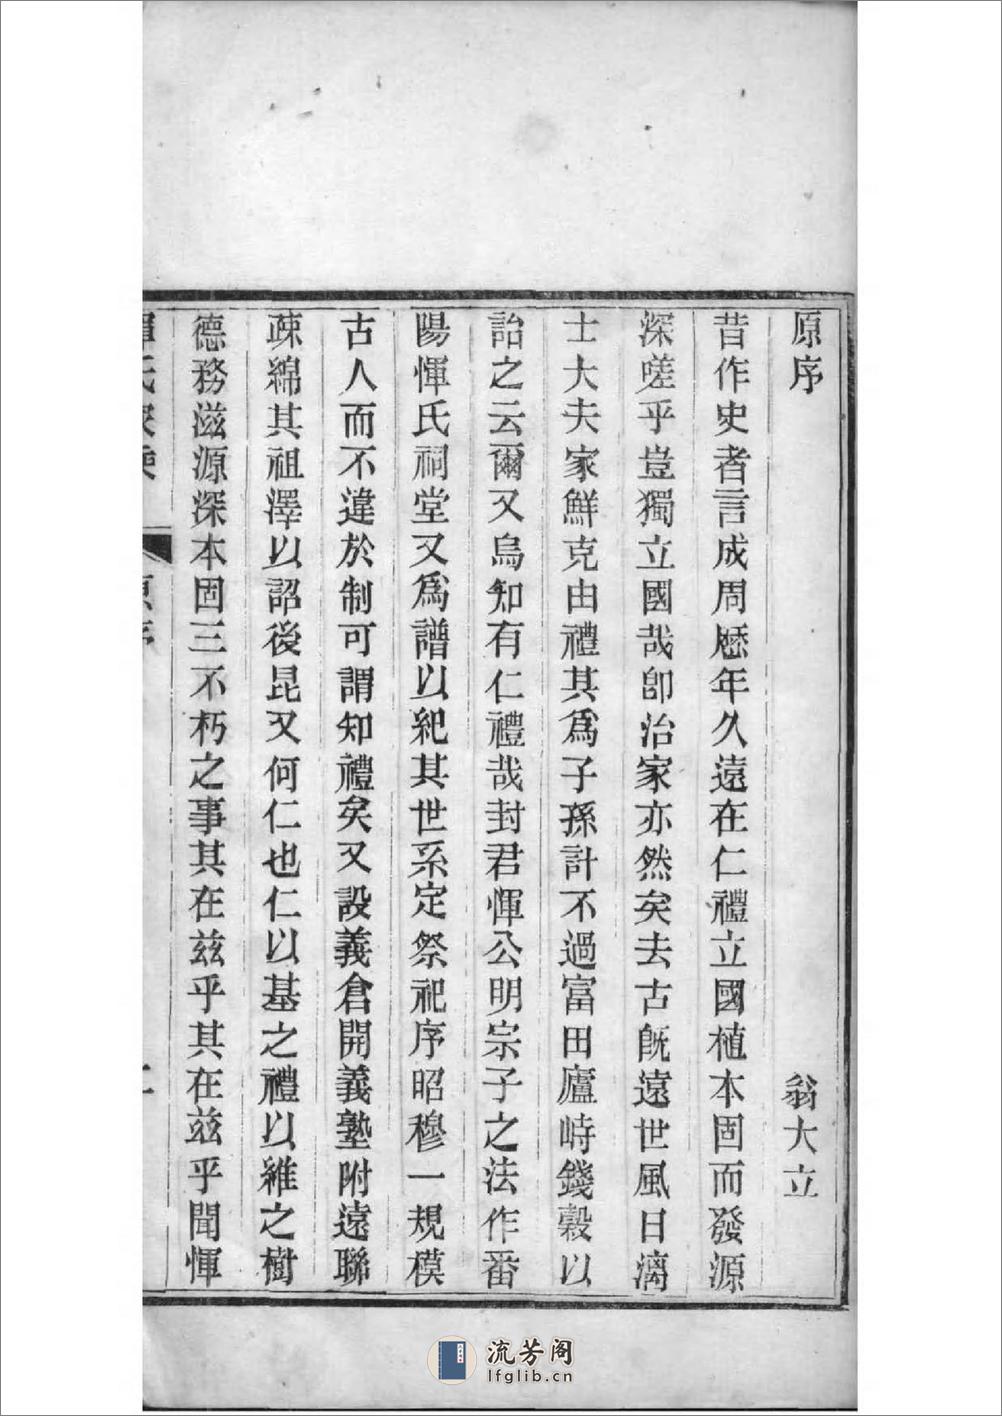 原序
翁大立
昔作史者言成周歷年久遠在仁禮立國植本固而發源
深嗟乎豈獨立國哉卽治家亦然矣去古旣遠世風日漓
士大夫家鮮克由禮其爲子孫計不過富田廬峙錢穀以
詒之云爾又烏知有仁禮哉封君惲公明宗子之法作番
陽惲氏祠堂又爲譜以紀其世系定祭祀序昭穆一規模
古人而不違於制可謂知禮矣又設義倉開義塾附遠聯
疎綿其祖澤以詔後昆又何仁也仁以基之禮以維之樹
德務滋源深本固三不朽之事其在兹乎其在兹乎聞惲
流芳阁
lfglib.cn